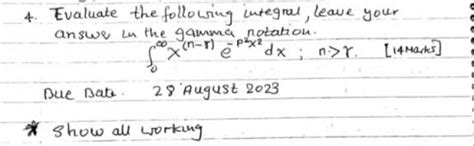 4. Evaluate the following integral, leave your
answer in the gamma notation.
∫₀^∞ x^(n-γ) e^(-p²x²) dx ; n>γ. [14 Marks]
Due Date. 28 August 2023
* Show all working